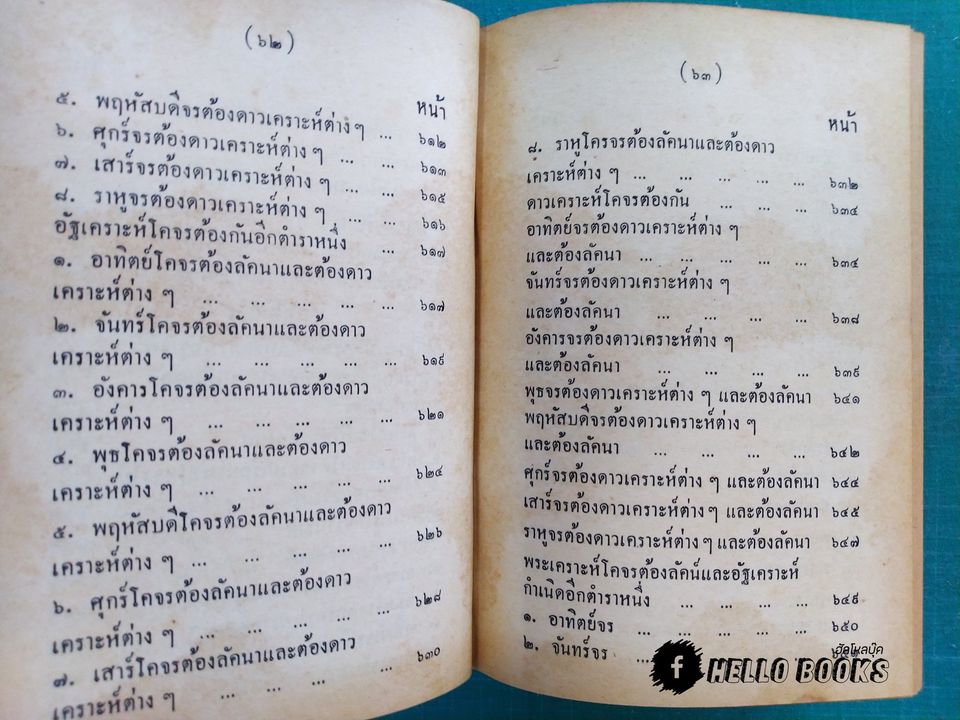 (๖๒)
หน้า
๕. พฤหัสบดีจรต้องดาวเคราะห์ต่างๆ ... ๖๑๒
๖. ศุกร์จรต้องดาวเคราะห์ต่าง ๆ ... ... ๖๑๓
๗. เสาร์จรต้องดาวเคราะห์ต่าง ๆ ... ... ๖๑๕
๘. ราหูจรต้องดาวเคราะห์ต่าง ๆ ... ... ๖๑๖
อัฐเคราะห์โคจรต้องกันอีกตำราหนึ่ง ... ๖๑๗
๑. อาทิตย์โคจรต้องลัคนาและต้องดาว
เคราะห์ต่าง ๆ ... ... ... ... ... ๖๑๗
๒. จันทร์โคจรต้องลัคนาและต้องดาว
เคราะห์ต่าง ๆ ... ... ... ... ... ๖๑๙
๓. อังคารโคจรต้องลัคนาและต้องดาว
เคราะห์ต่าง ๆ ... ... ... ... ... ๖๒๑
๔. พุธโคจรต้องลัคนาและต้องดาว
เคราะห์ต่าง ๆ ... ... ... ... ... ๖๒๔
๕. พฤหัสบดีโคจรต้องลัคนาและต้องดาว
เคราะห์ต่าง ๆ ... ... ... ... ๖๒๖
๖. ศุกร์โคจรต้องลัคนาและต้องดาว
เคราะห์ต่าง ๆ ... ... ... ... ... ๖๒๘
๗. เสาร์โคจรต้องลัคนาและต้องดาว
เคราะห์ต่าง ๆ ... ... ... ... ๖๓๐
(๖๓)
หน้า
๘. ราหูโครจรต้องลัคนาและต้องดาว
เคราะห์ต่าง ๆ ... ... ... ... ... ๖๓๒
ดาวเคราะห์โคจรต้องกัน ... ... ... ๖๓๔
อาทิตย์จรต้องดาวเคราะห์ต่าง ๆ
และต้องลัคนา ... ... ... ... ... ๖๓๔
จันทร์จรต้องดาวเคราะห์ต่าง ๆ
และต้องลัคนา ... ... ... ... ๖๓๘
อังคารจรต้องดาวเคราะห์ต่าง ๆ
และต้องลัคนา ... ... ... ... ๖๓๙
พุธจรต้องดาวเคราะห์ต่าง ๆ และต้องลัคนา ๖๔๑
พฤหัสบดีจรต้องดาวเคราะห์ต่าง ๆ
และต้องลัคนา ... ... ... ... ๖๔๒
ศุกร์จรต้องดาวเคราะห์ต่าง ๆ และต้องลัคนา ๖๔๔
เสาร์จรต้องดาวเคราะห์ต่างๆ และต้องลัคนา ๖๔๕
ราหูจรต้องดาวเคราะห์ต่างๆ และต้องลัคนา ๖๔๗
พระเคราะห์โคจรต้องลัคน์และอัฐเคราะห์
กำเนิดอีกตำราหนึ่ง ... ... ... ... ๖๔๙
๑. อาทิตย์จร ... ... ... ... ... ๖๕๐
๒. จันทร์จร ...
ฮัลโหลบุ๊ค
f HELLO BOOKS